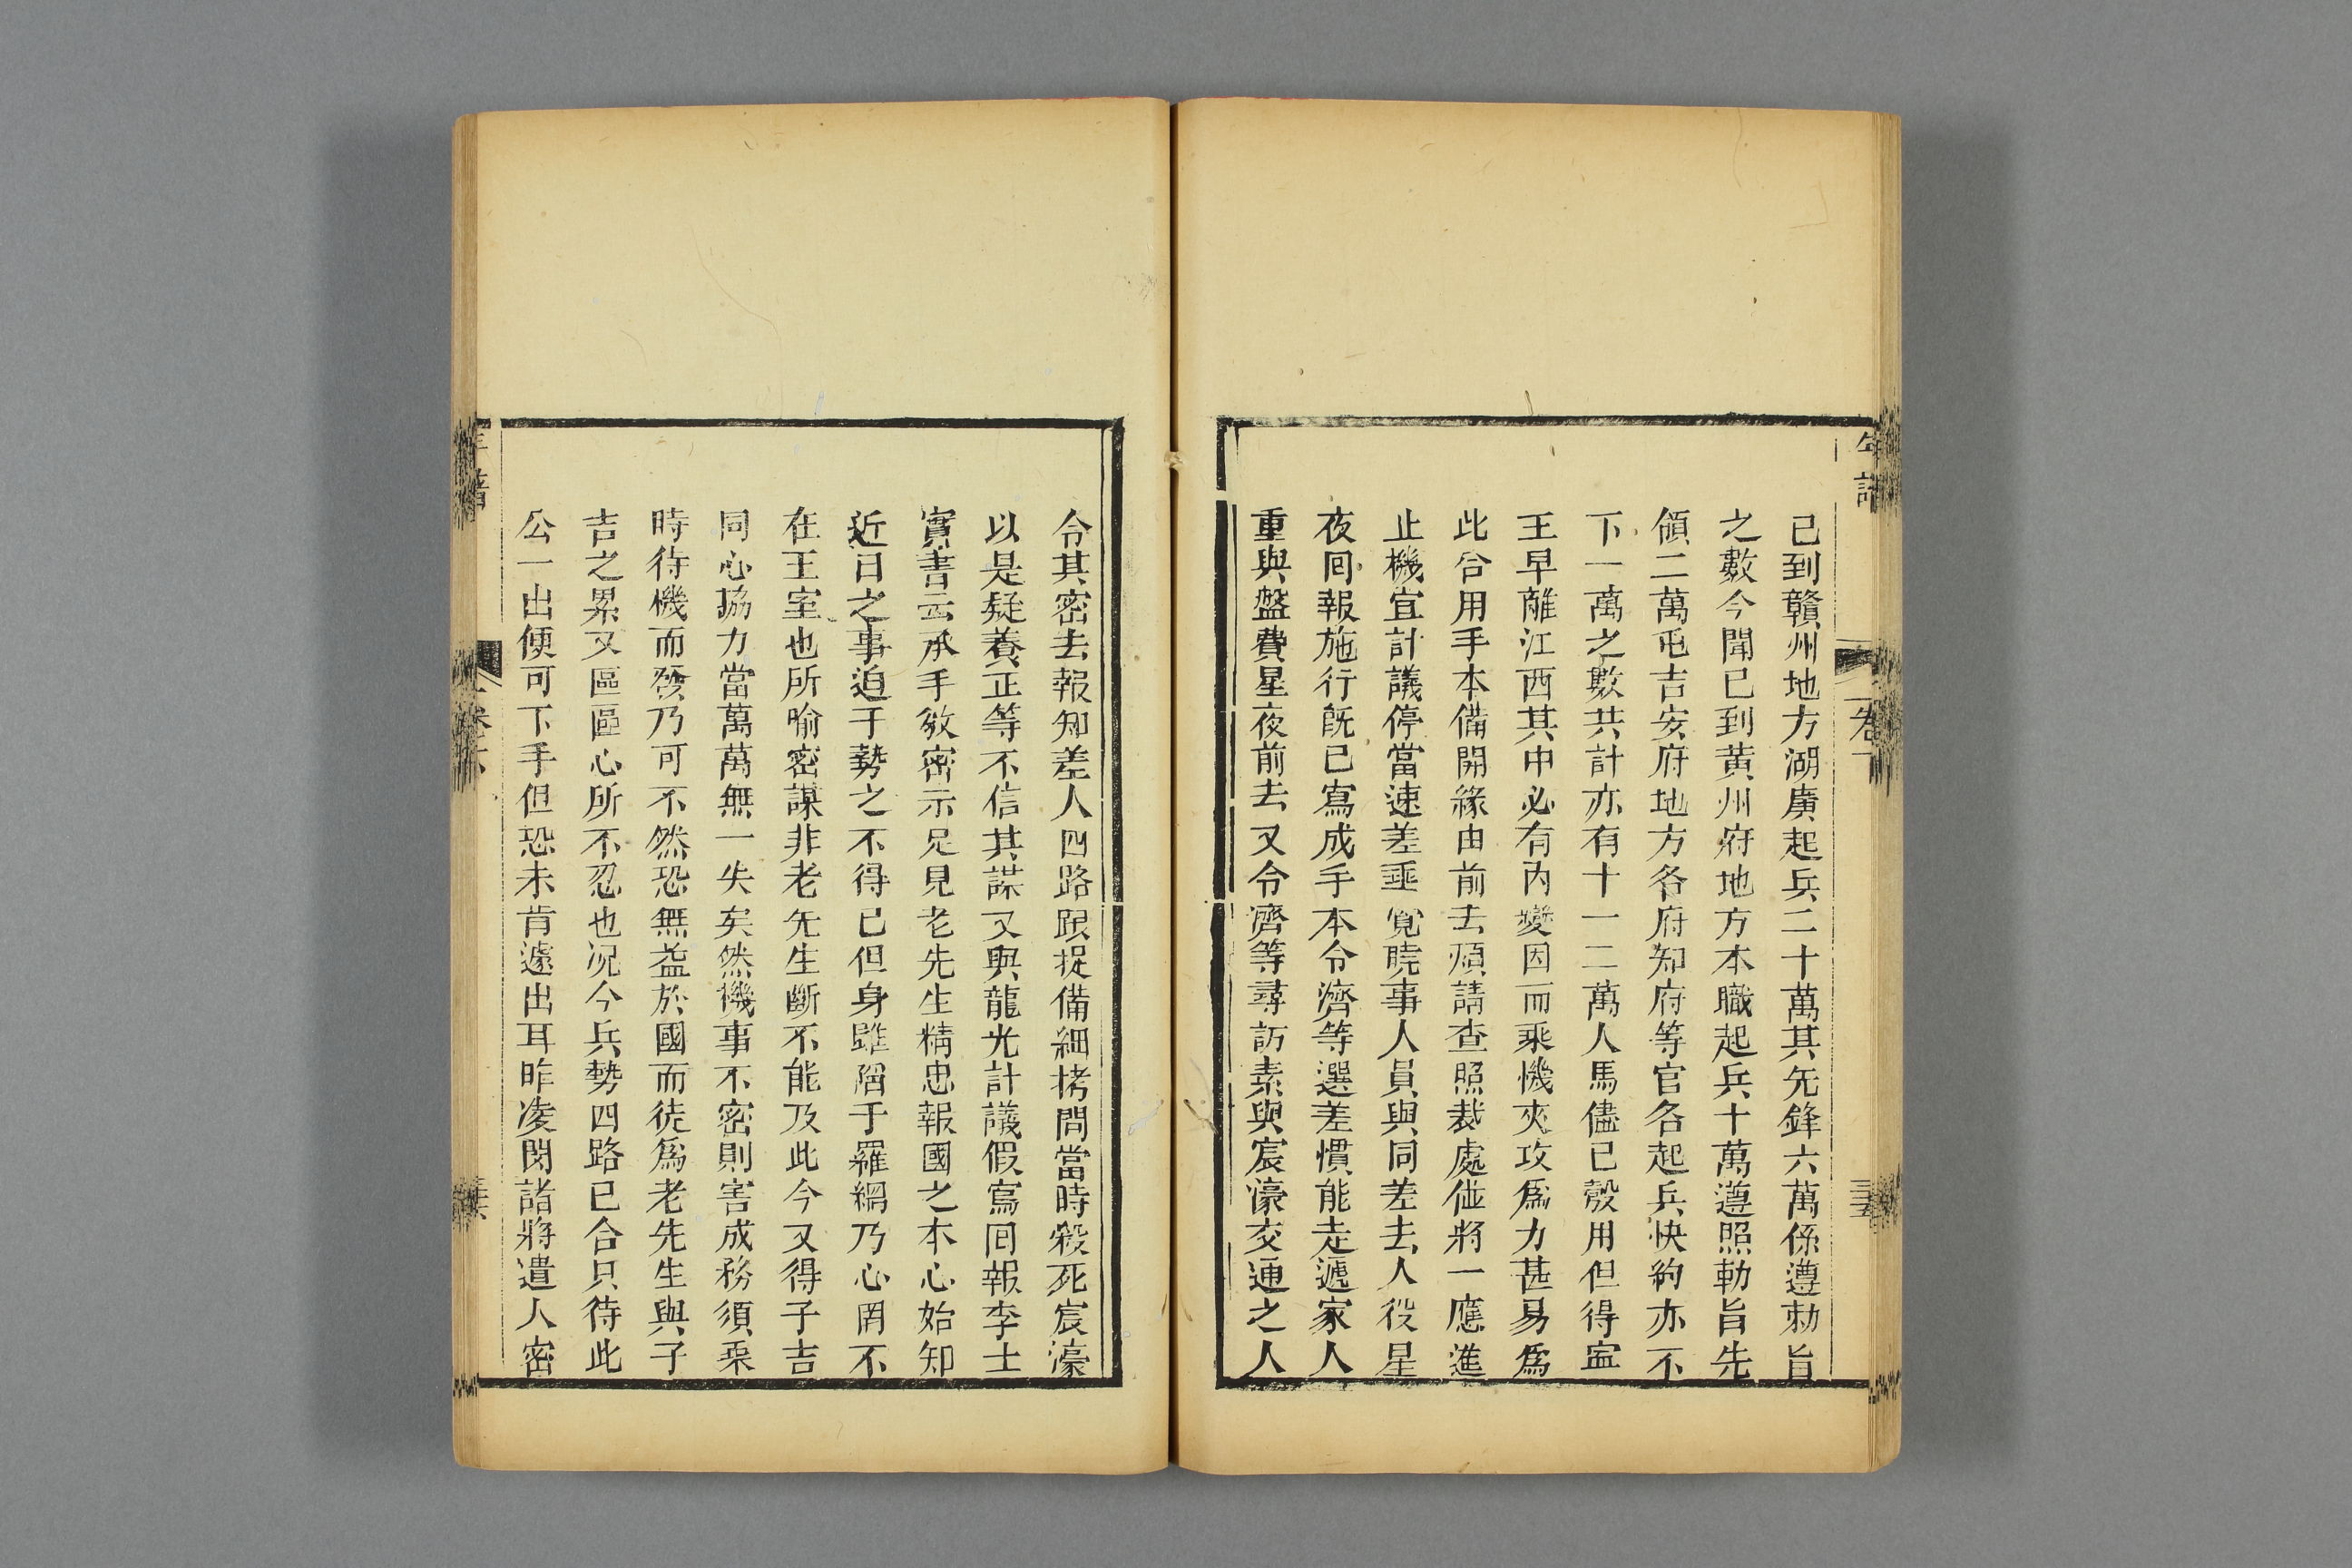 年譜
卷下
三五
已到贛州地方湖廣起兵二十萬其先鋒六萬係遵勅旨
之數今聞已到黄州府地方本職起兵十萬遵照勅旨先
領二萬屯吉安府地方各府知府等官各起兵快約亦不
下一萬之數共計亦有十一二萬人馬儘已彀用但得寕
王早離江西其中必有內變因而乘機夾攻爲力甚易爲
此合用手本備開緣由前去煩請查照裁處倂將一應進
止機宜計議停當速差乖覺曉事人員與同差去人役星
夜囘報施行旣已寫成手本令濟等選差慣能走遞家人
重與盤費星夜前去又令濟等尋訪素與宸濠交通之人
令其密去報知差人四路跟捉備細拷問當時殺死宸濠
以是疑養正等不信其謀又與龍光計議假寫囘報李士
實書云承手敎密示足見老先生精忠報國之本心始知
近日之事迫于勢之不得已但身雖陷于羅網乃心罔不
在王室也所喻密謀非老先生斷不能及此今又得子吉
同心協力當萬萬無一失矣然機事不密則害成務須乘
時待機而發乃可不然恐無益於國而徒爲老先生與子
吉之累又區區心所不忍也况今兵勢四路已合只待此
公一出便可下手但恐未肯遽出耳昨凌閔諸將遣人密
年譜
卷下
三六